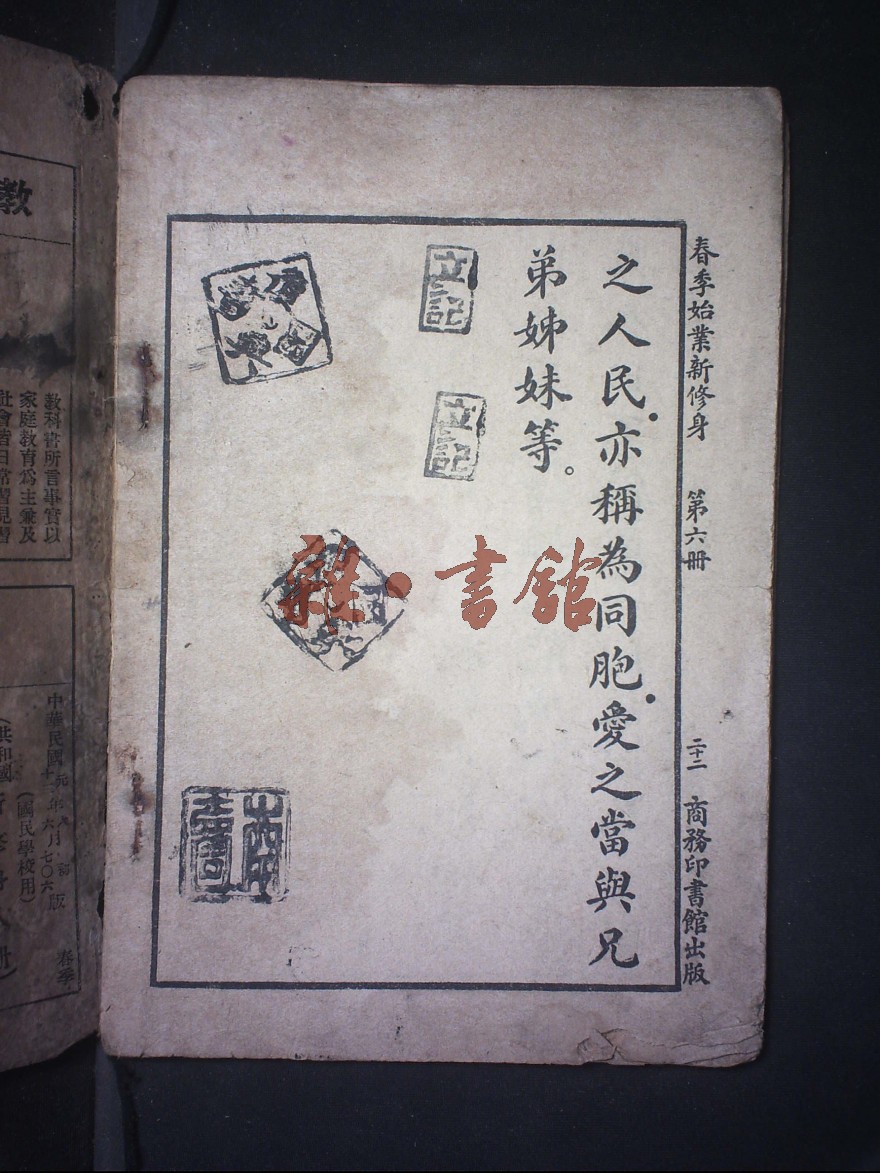 春季始業新修身 第六冊 二十二 商務印書館出版
之人民。亦稱為同胞。愛之當與兄
弟姊妹等。
立記
立記
雜·書館
教
教科書所言事實以
家庭教育為主兼及
社會皆日常習見習
中華民國
六月七〇六版
(國民學校用)
春季